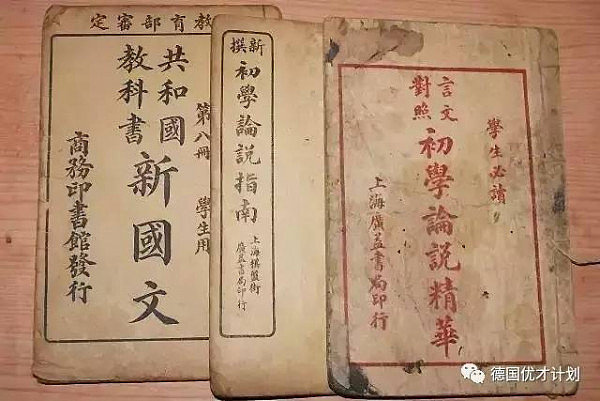 教育部審定
共和國
教科書
新國文
第八冊
學生用
商務印書館發行
新撰
初學論說指南
上海棋盤街
廣益書局印行
學生必讀
言文
對照
初學論說精華
上海廣益書局印行
德国优才计划